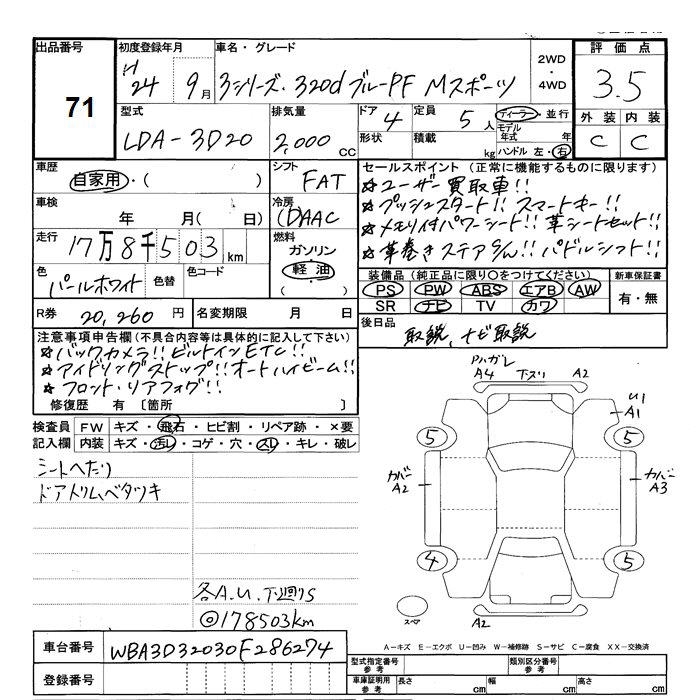 出品番号 初度登録年月 車名・グレード 評価点
71 H24 9月 3シリーズ. 320d ブルーPF Mスポーツ 2WD・4WD 3.5
型式 排気量 ドア 定員 ディーラー・並行 外装 内装
LDA-3D20 2,000cc 4 5人 モデル年式 年 C C
形状 積載 kg ハンドル 左・右
車歴 シフト セールスポイント (正常に機能するものに限ります)
自家用・( ) FAT ☆ユーザー買取車!!
車検 冷房 ☆プッシュスタート!! スマートキー!!
年 月( 日) (D)AAC ☆メモリ付パワーシート!! 革シートセット!!
走行 燃料 ☆革巻きステアS/W!! パドルシフト!!
17万8千503km ガソリン
軽油
( )
装備品 (純正品に限り○をつけてください) 新車保証書
色 色替 色コード PS PW ABS エアB AW 有・無
パールホワイト SR ナビ TV カワ
R券 20,260円 名変期限 月 日 後日品 取説,ナビ取説
注意事項申告欄(不具合内容等は具体的に記入して下さい)
☆バックカメラ!! ビルトインETC!!
☆アイドリングストップ!! オートハイビーム!!
☆フロント・リアフォグ!!
修復歴 有 [箇所 ]
検査員 FW キズ・飛石・ヒビ割・リペア跡・×要
記入欄 内装 キズ・汚レ・コゲ・穴・スレ・キレ・破レ
シートヘタリ
ドアトリムベタツキ
各A.U.下廻りS
◎178503km
Pハガレ
A4 下スリ A2
U1
A1
5 5
カバー カバー
A2 A3
4 5
スペア A2
A-キズ E-エクボ U-凹み W-補修跡 S-サビ C-腐食 XX-交換済
車台番号 WBA3D32030F286274
登録番号
型式指定番号 参考 類別区分番号 参考
車庫証明用 参考 長さ cm 幅 cm 高さ cm